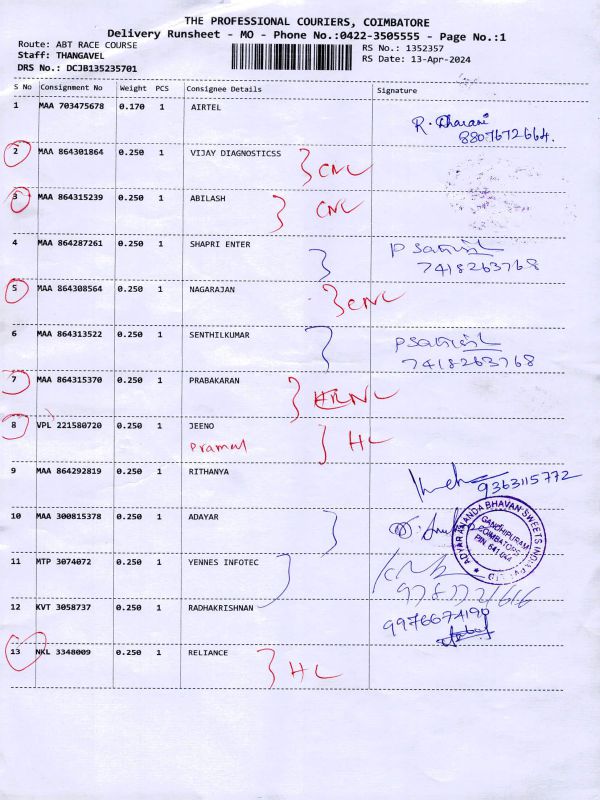 THE PROFESSIONAL COURIERS, COIMBATORE
Delivery Runsheet - MO - Phone No.:0422-3505555 - Page No.:1
Route: ABT RACE COURSE
Staff: THANGAVEL
DRS No.: DCJB135235701
RS No.: 1352357
RS Date: 13-Apr-2024
S No Consignment No Weight PCS Consignee Details Signature
1 MAA 703475678 0.170 1 AIRTEL
R. Dharani
8807672664.
2 MAA 864301864 0.250 1 VIJAY DIAGNOSTICSS CNC
3 MAA 864315239 0.250 1 ABILASH CNC
4 MAA 864287261 0.250 1 SHAPRI ENTER
P Satish
7418263768
5 MAA 864308564 0.250 1 NAGARAJAN CNC
6 MAA 864313522 0.250 1 SENTHILKUMAR
P Satish
7418263768
7 MAA 864315370 0.250 1 PRABAKARAN
8 VPL 221580720 0.250 1 JEENO HC
Pramal
9 MAA 864292819 0.250 1 RITHANYA
9363115772
10 MAA 300815378 0.250 1 ADAYAR
ADYAR ANANDA BHAVAN SWEETS INDIA
GANDHIPURAM
COIMBATORE
PIN. 641 044
11 MTP 3074072 0.250 1 YENNES INFOTEC
12 KVT 3058737 0.250 1 RADHAKRISHNAN
9976674190
13 NKL 3348009 0.250 1 RELIANCE HC